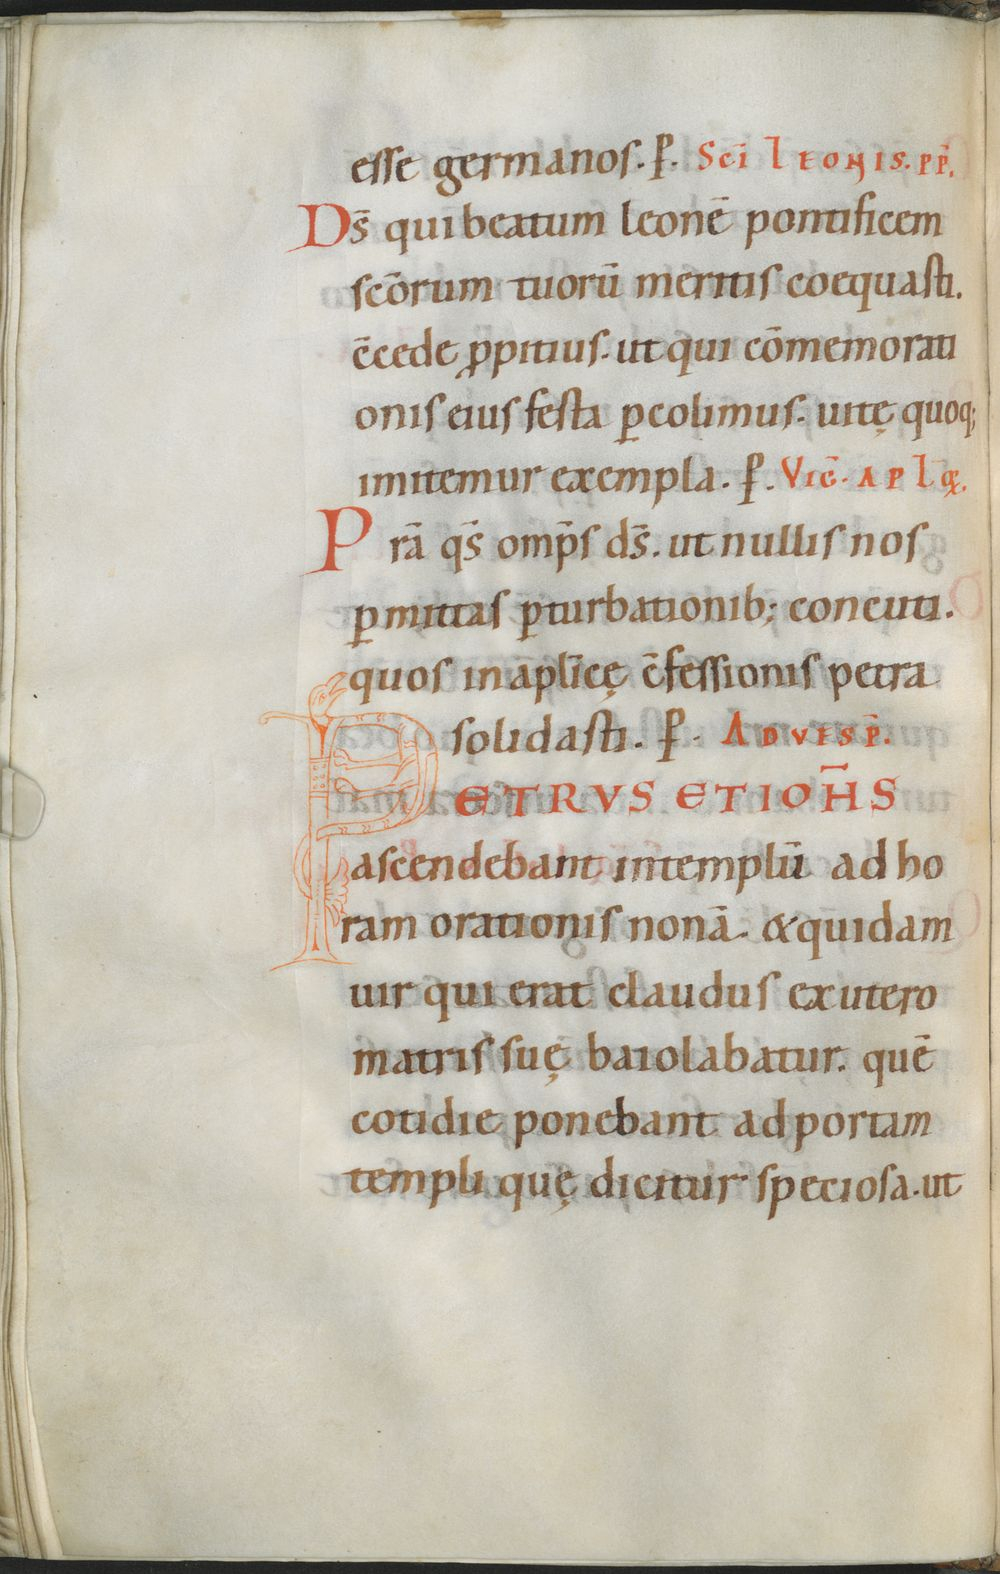 esse germanos. ꝑ. Scī LEONIS. PP̄.
Ds̄ qui beatum leonē pontificem
scōrum tuorū meritis coequasti.
c̄cede ꝓpitius. ut qui cōmemorati
onis eius festa ꝑcolimus. uitę quoq;
imitemur exempla. ꝑ. Vic̄. APLOꝜ.
Prā qs̄ omp̄s ds̄. ut nullis nos
ꝑmittas ꝑturbationib; concuti.
quos in apl̄icę c̄fessionis petra
solidasti. ꝑ. AD VESP̄.
PETRVS ET IOH̄S
ascendebant in templū ad ho
ram orationis nonā. & quidam
uir qui erat claudus ex utero
matris suę baiolabatur. quē
cotidie ponebant ad portam
templi quę dicitur speciosa. ut